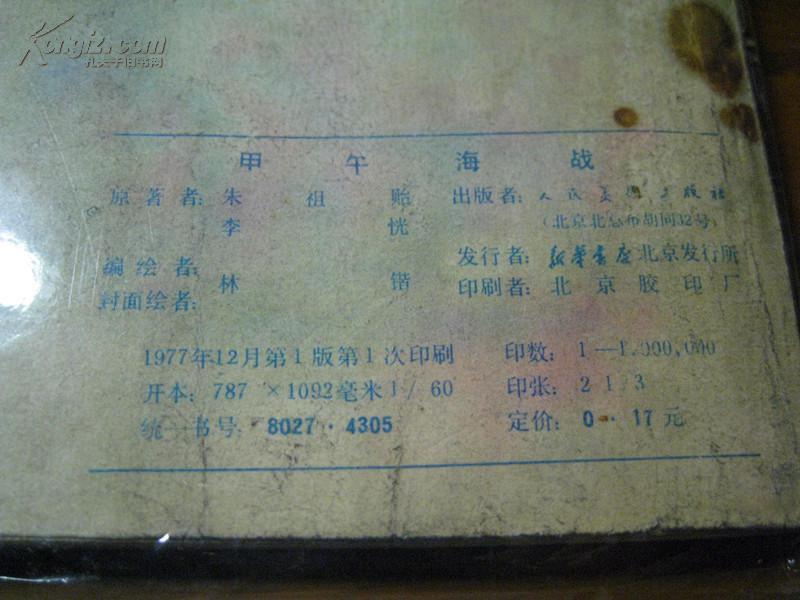 Kongfz.com
孔夫子旧书网
甲午海战
原著者：朱祖贻 出版者：人民美术出版社
李恍 （北京北总布胡同32号）
编绘者： 发行者：新华书店北京发行所
封面绘者： 林锴 印刷者：北京胶印厂
1977年12月第1版第1次印刷 印数：1—1,000,000
开本：787×1092毫米1/60 印张：2 1/3
统一书号：8027·4305 定价：0·17元